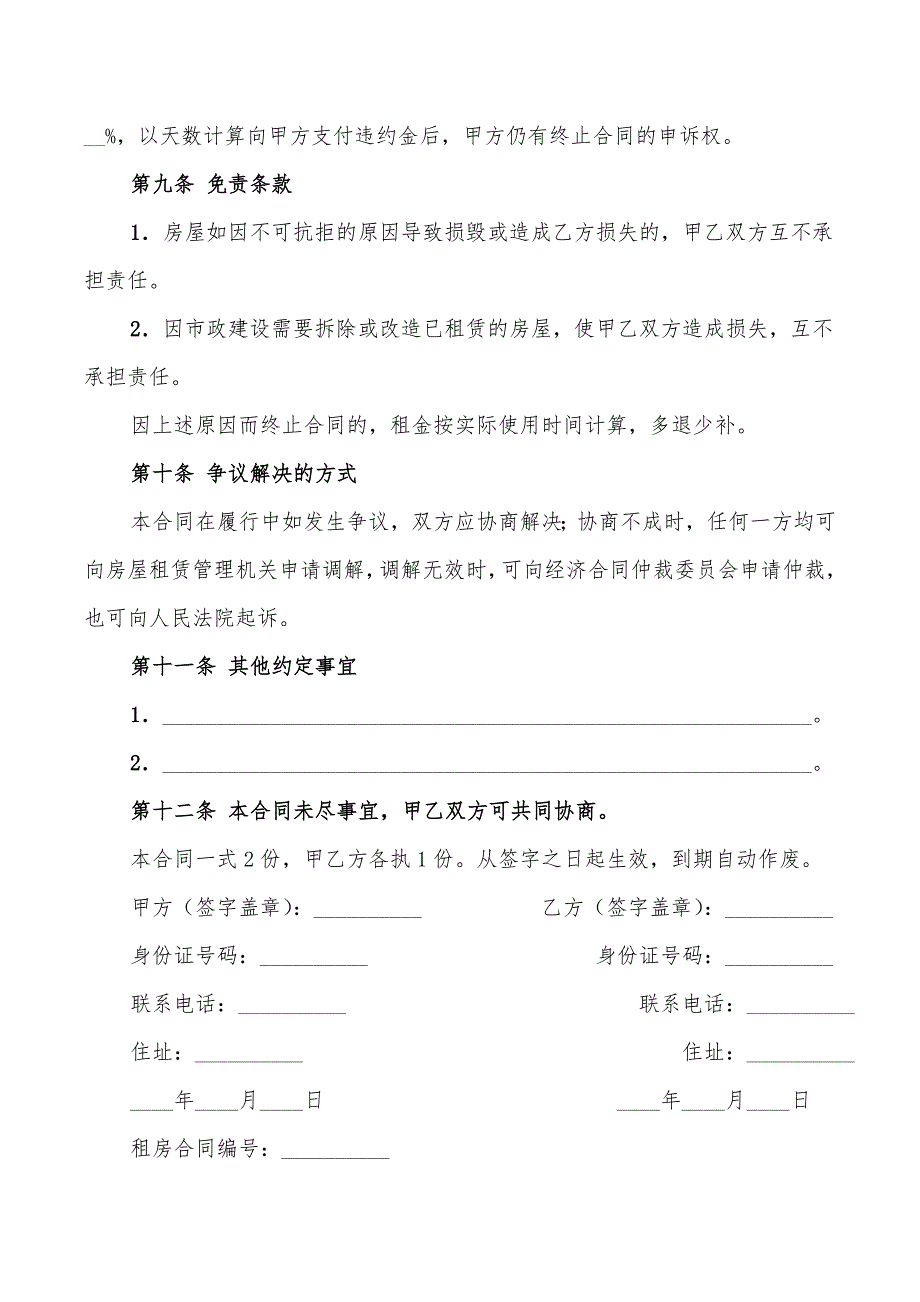 __%，以天数计算向甲方支付违约金后，甲方仍有终止合同的申诉权。
第九条 免责条款
1．房屋如因不可抗拒的原因导致损毁或造成乙方损失的，甲乙双方互不承
担责任。
2．因市政建设需要拆除或改造已租赁的房屋，使甲乙双方造成损失，互不
承担责任。
因上述原因而终止合同的，租金按实际使用时间计算，多退少补。
第十条 争议解决的方式
本合同在履行中如发生争议，双方应协商解决；协商不成时，任何一方均可
向房屋租赁管理机关申请调解，调解无效时，可向经济合同仲裁委员会申请仲裁，
也可向人民法院起诉。
第十一条 其他约定事宜
1．____________________________________________________________。
2．____________________________________________________________。
第十二条 本合同未尽事宜，甲乙双方可共同协商。
本合同一式2份，甲乙方各执1份。从签字之日起生效，到期自动作废。
甲方（签字盖章）：__________ 乙方（签字盖章）：__________
身份证号码：__________ 身份证号码：__________
联系电话：__________ 联系电话：__________
住址：__________ 住址：__________
____年____月____日 ____年____月____日
租房合同编号：__________